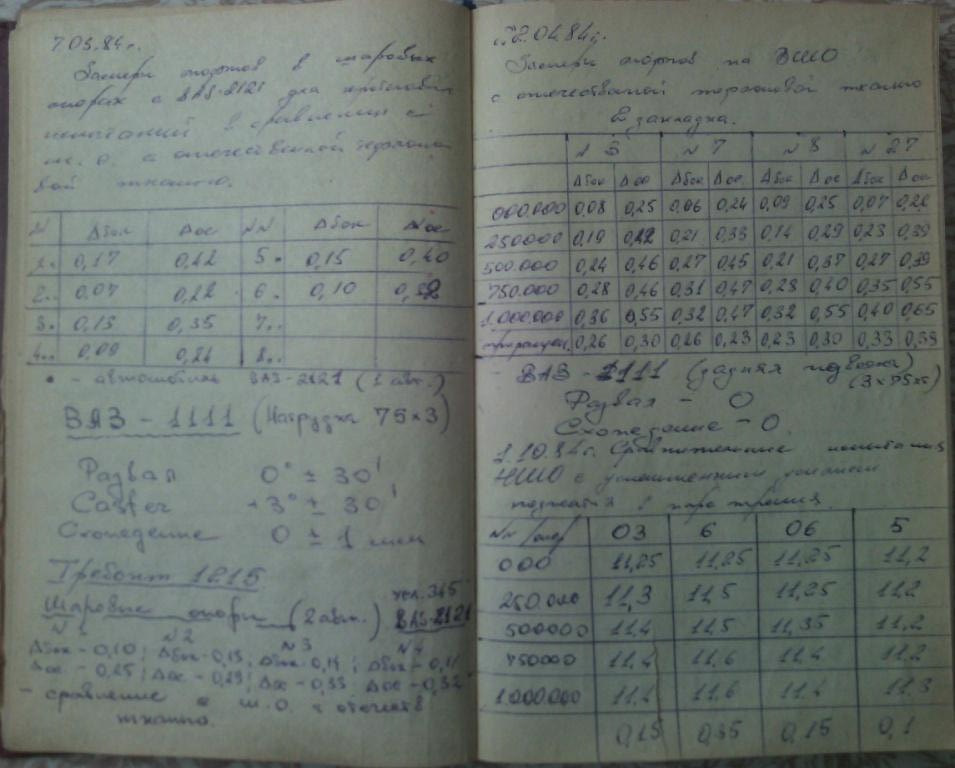 7.03.84 г.
Замеры люфтов в шаровых
опорах а/м ВАЗ-2121 для
испытаний в сравнении с
ш.о. с отечественной тефлоно-
вой тканью.
N Δбок Δос NN Δбок Δос
1. 0,17 0,42 5. 0,15 0,40
2. 0,07 0,22 6. 0,10
3. 0,15 0,35 7.
4. 0,09 0,24 8.
• - автомобиль ВАЗ-2121 (1 авт.)
ВАЗ-1111 (Нагрузка 75×3)
Развал 0° ± 30'
Caster +3° ± 30'
Схождение 0 ± 1 мм
Требонт 1215
Шаровые опоры (2 авт.) ВАЗ-2121
N1 N2 N3 N4
Δбок-0,10; Δбок-0,15; Δбок-0,14; Δбок-0,11
Δос-0,25; Δос-0,29; Δос-0,33; Δос-0,32
- сравнение с ш.о. с отечеств
тканью.
12.04.84 г.
Замеры люфтов на ВШО
с отечественной тефлоновой тканью
2 закладка.
N 3 N 7 N 8 N 27
Δбок Δос Δбок Δос Δбок Δос Δбок Δос
000.000 0,08 0,25 0,06 0,24 0,09 0,25 0,07
250000 0,19 0,21 0,33 0,14 0,29 0,23 0,39
500.000 0,24 0,46 0,27 0,45 0,21 0,37 0,27 0,39
750.000 0,28 0,46 0,31 0,47 0,28 0,40 0,35 0,55
1.000.000 0,36 0,55 0,32 0,47 0,32 0,55 0,40 0,65
приращен. 0,26 0,30 0,26 0,23 0,23 0,30 0,33
ВАЗ-1111 (задняя подвеска)
Развал - 0
Схождение - 0.
1.10.84 г. Сравнительные испытания
НШО с уменьшенным усилием
поджатия в паре трения.
03 6 06 5
000 11,25 11,25 11,25 11,2
250.000 11,3 11,5 11,25 11,2
500000 11,4 11,5 11,35 11,2
750000 11,4 11,6 11,4 11,2
1.000.000 11,4 11,6 11,4 11,3
0,15 0,35 0,15 0,1